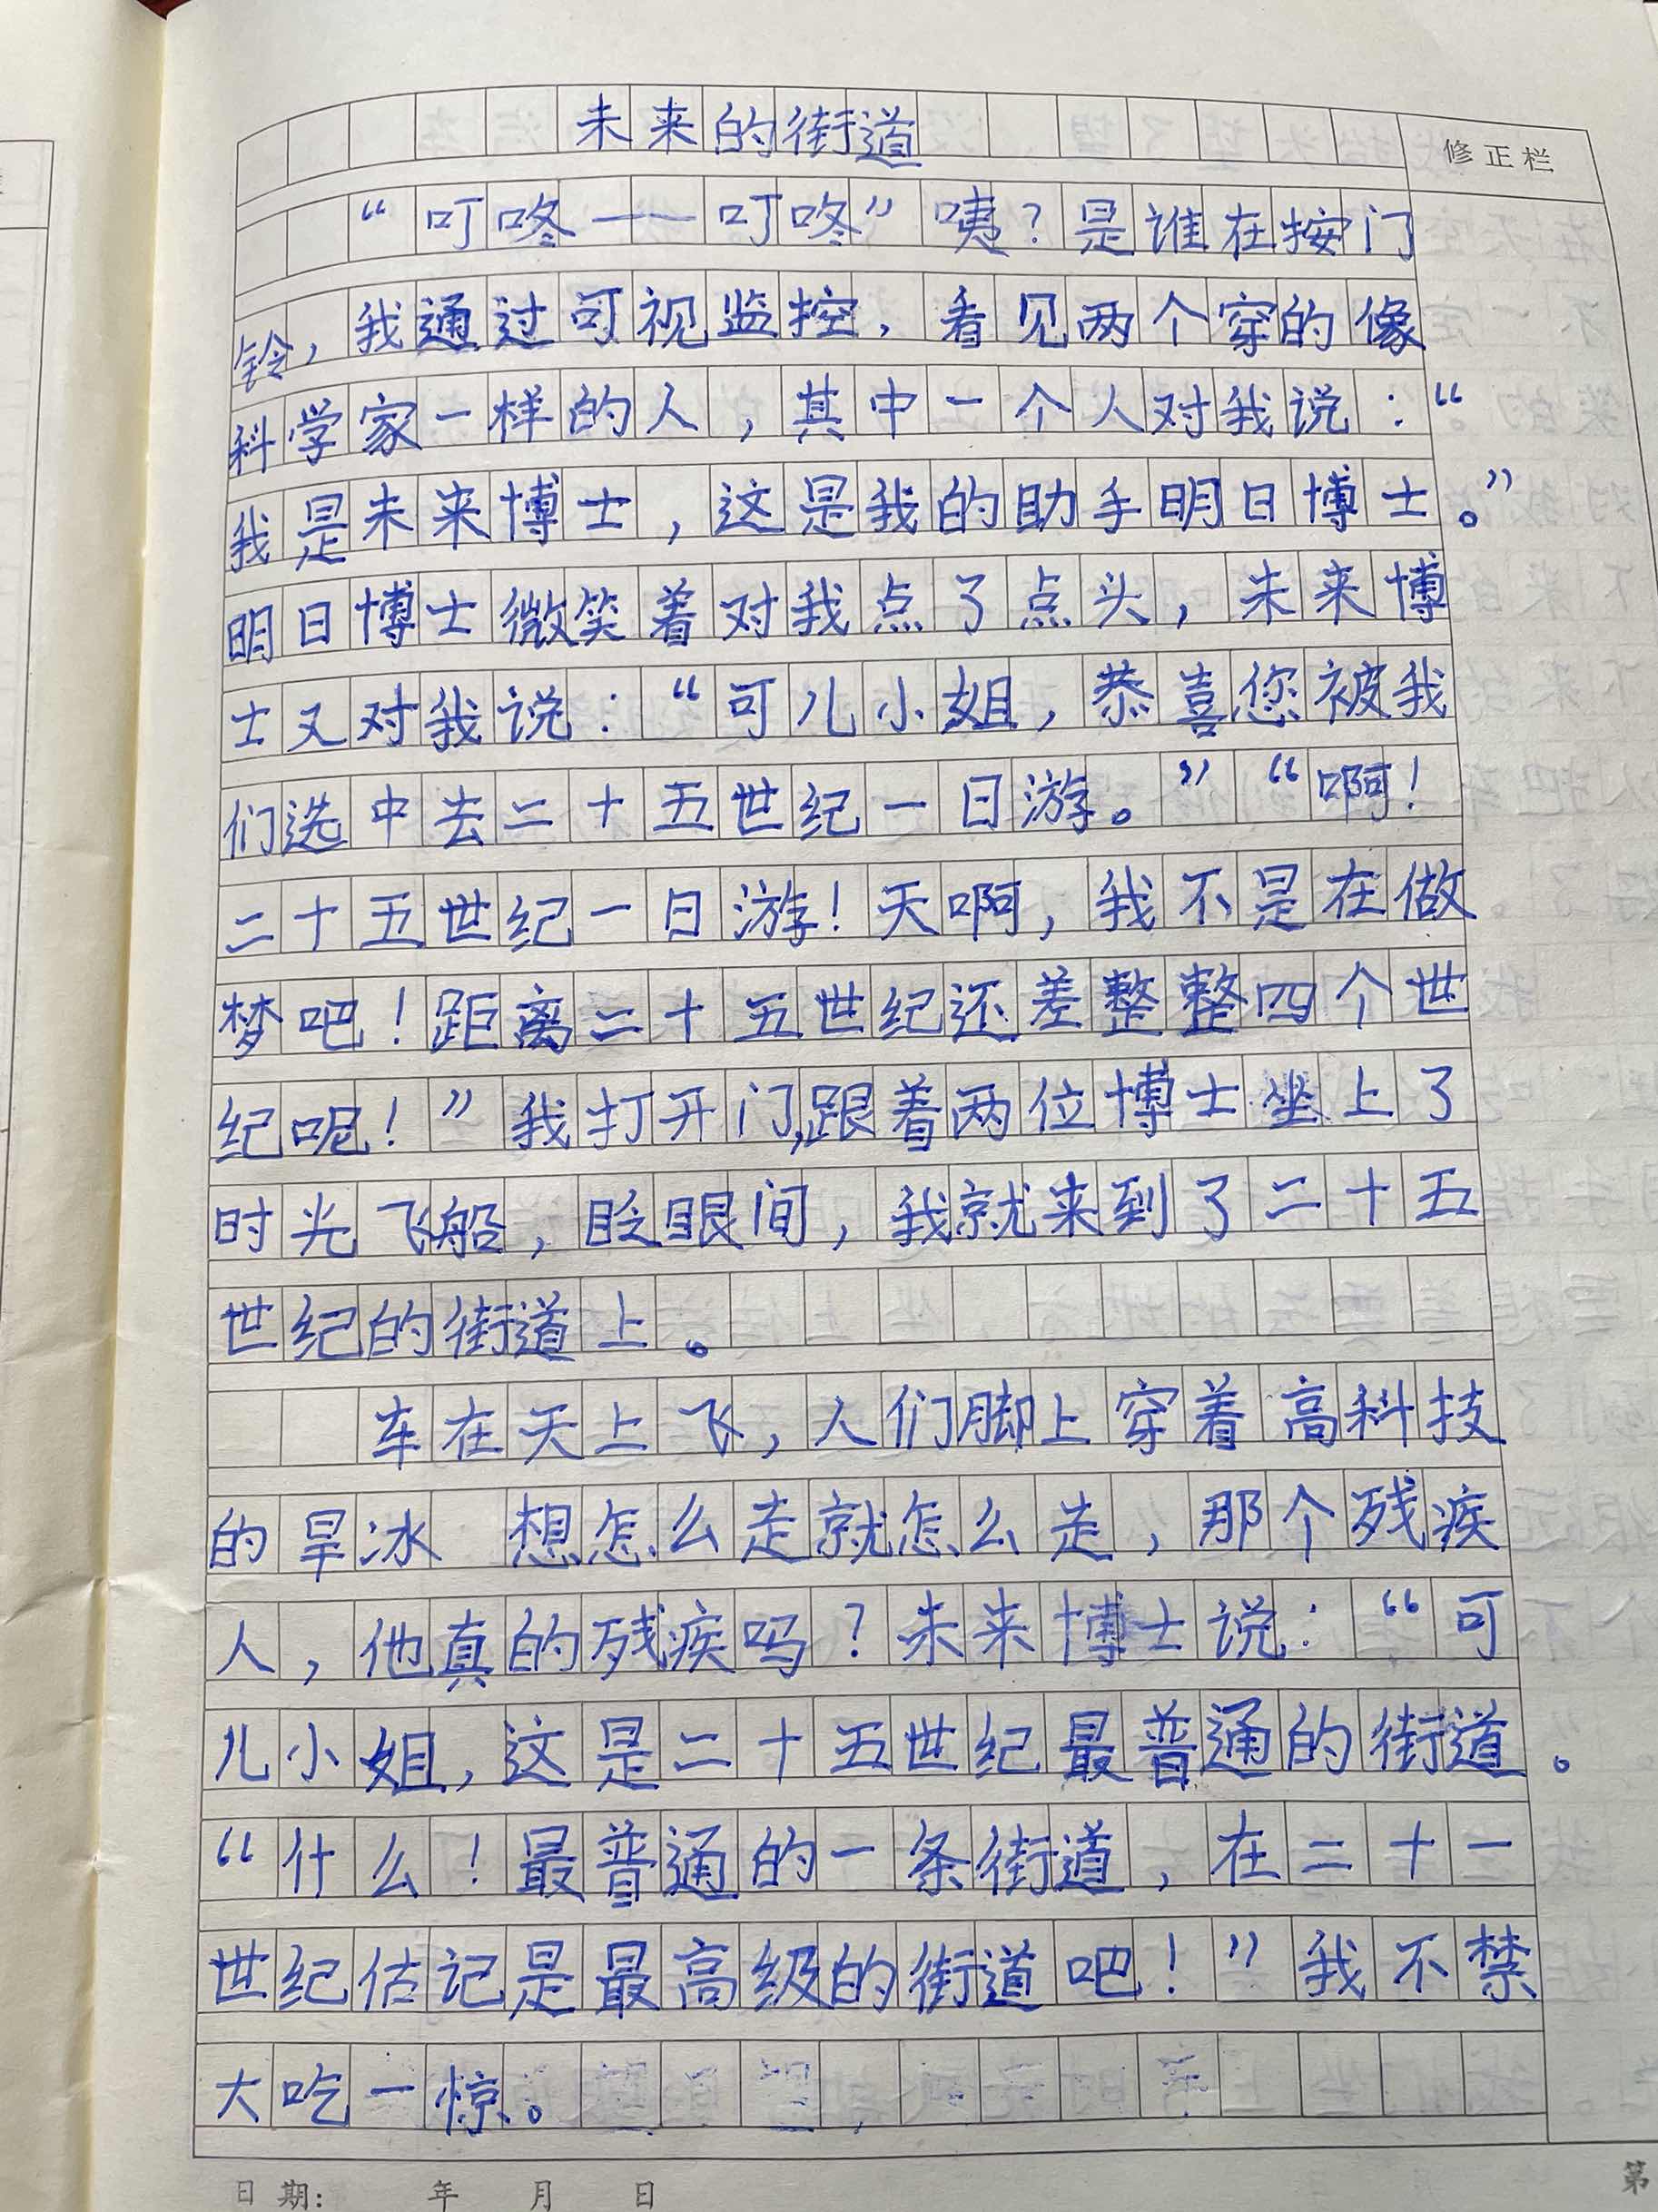 未来的街道
修正栏
“叮咚——叮咚”咦？是谁在按门
铃，我通过可视监控，看见两个穿的像
科学家一样的人，其中一个人对我说：“
我是未来博士，这是我的助手明日博士。”
明日博士微笑着对我点了点头，未来博
士又对我说：“可儿小姐，恭喜您被我
们选中去二十五世纪一日游。”“啊！
二十五世纪一日游！天啊，我不是在做
梦吧！距离二十五世纪还差整整四个世
纪呢！”我打开门，跟着两位博士坐上了
时光飞船，眨眼间，我就来到了二十五
世纪的街道上。
车在天上飞，人们脚上穿着高科技
的旱冰 想怎么走就怎么走，那个残疾
人，他真的残疾吗？未来博士说：“可
儿小姐，这是二十五世纪最普通的街道。
“什么！最普通的一条街道，在二十一
世纪估记是最高级的街道吧！”我不禁
大吃一惊。
日期： 年 月 日
第